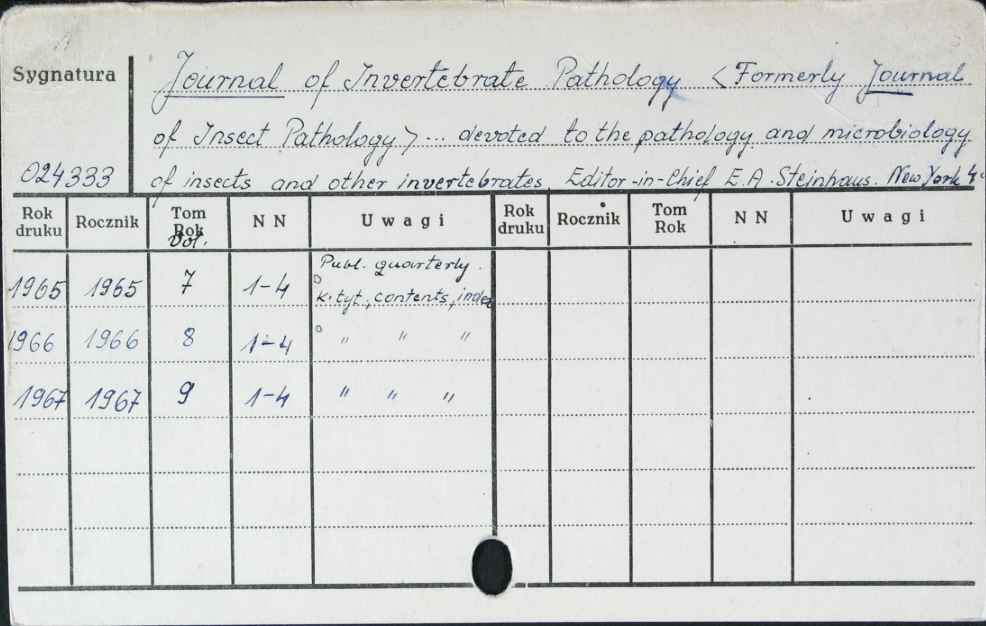 Sygnatura
Journal of Invertebrate Pathology <Formerly Journal
of Insect Pathology> ... devoted to the pathology and microbiology
024333
of insects and other invertebrates. Editor-in-Chief E.A. Steinhaus. New York 4°
Rok druku Rocznik Tom Rok Vol. N N Uwagi Rok druku Rocznik Tom Rok N N Uwagi
Publ. quarterly.
1965 1965 7 1-4 k. tyt., contents, index
1966 1966 8 1-4 " " "
1967 1967 9 1-4 " " "